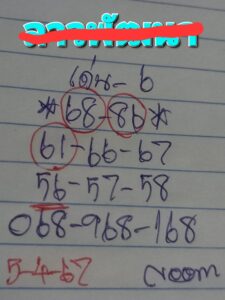 ลาวพัฒนา
เด่น - 6
*68-86*
61-66-67
56-57-58
068-968-168
5-4-67 Noom